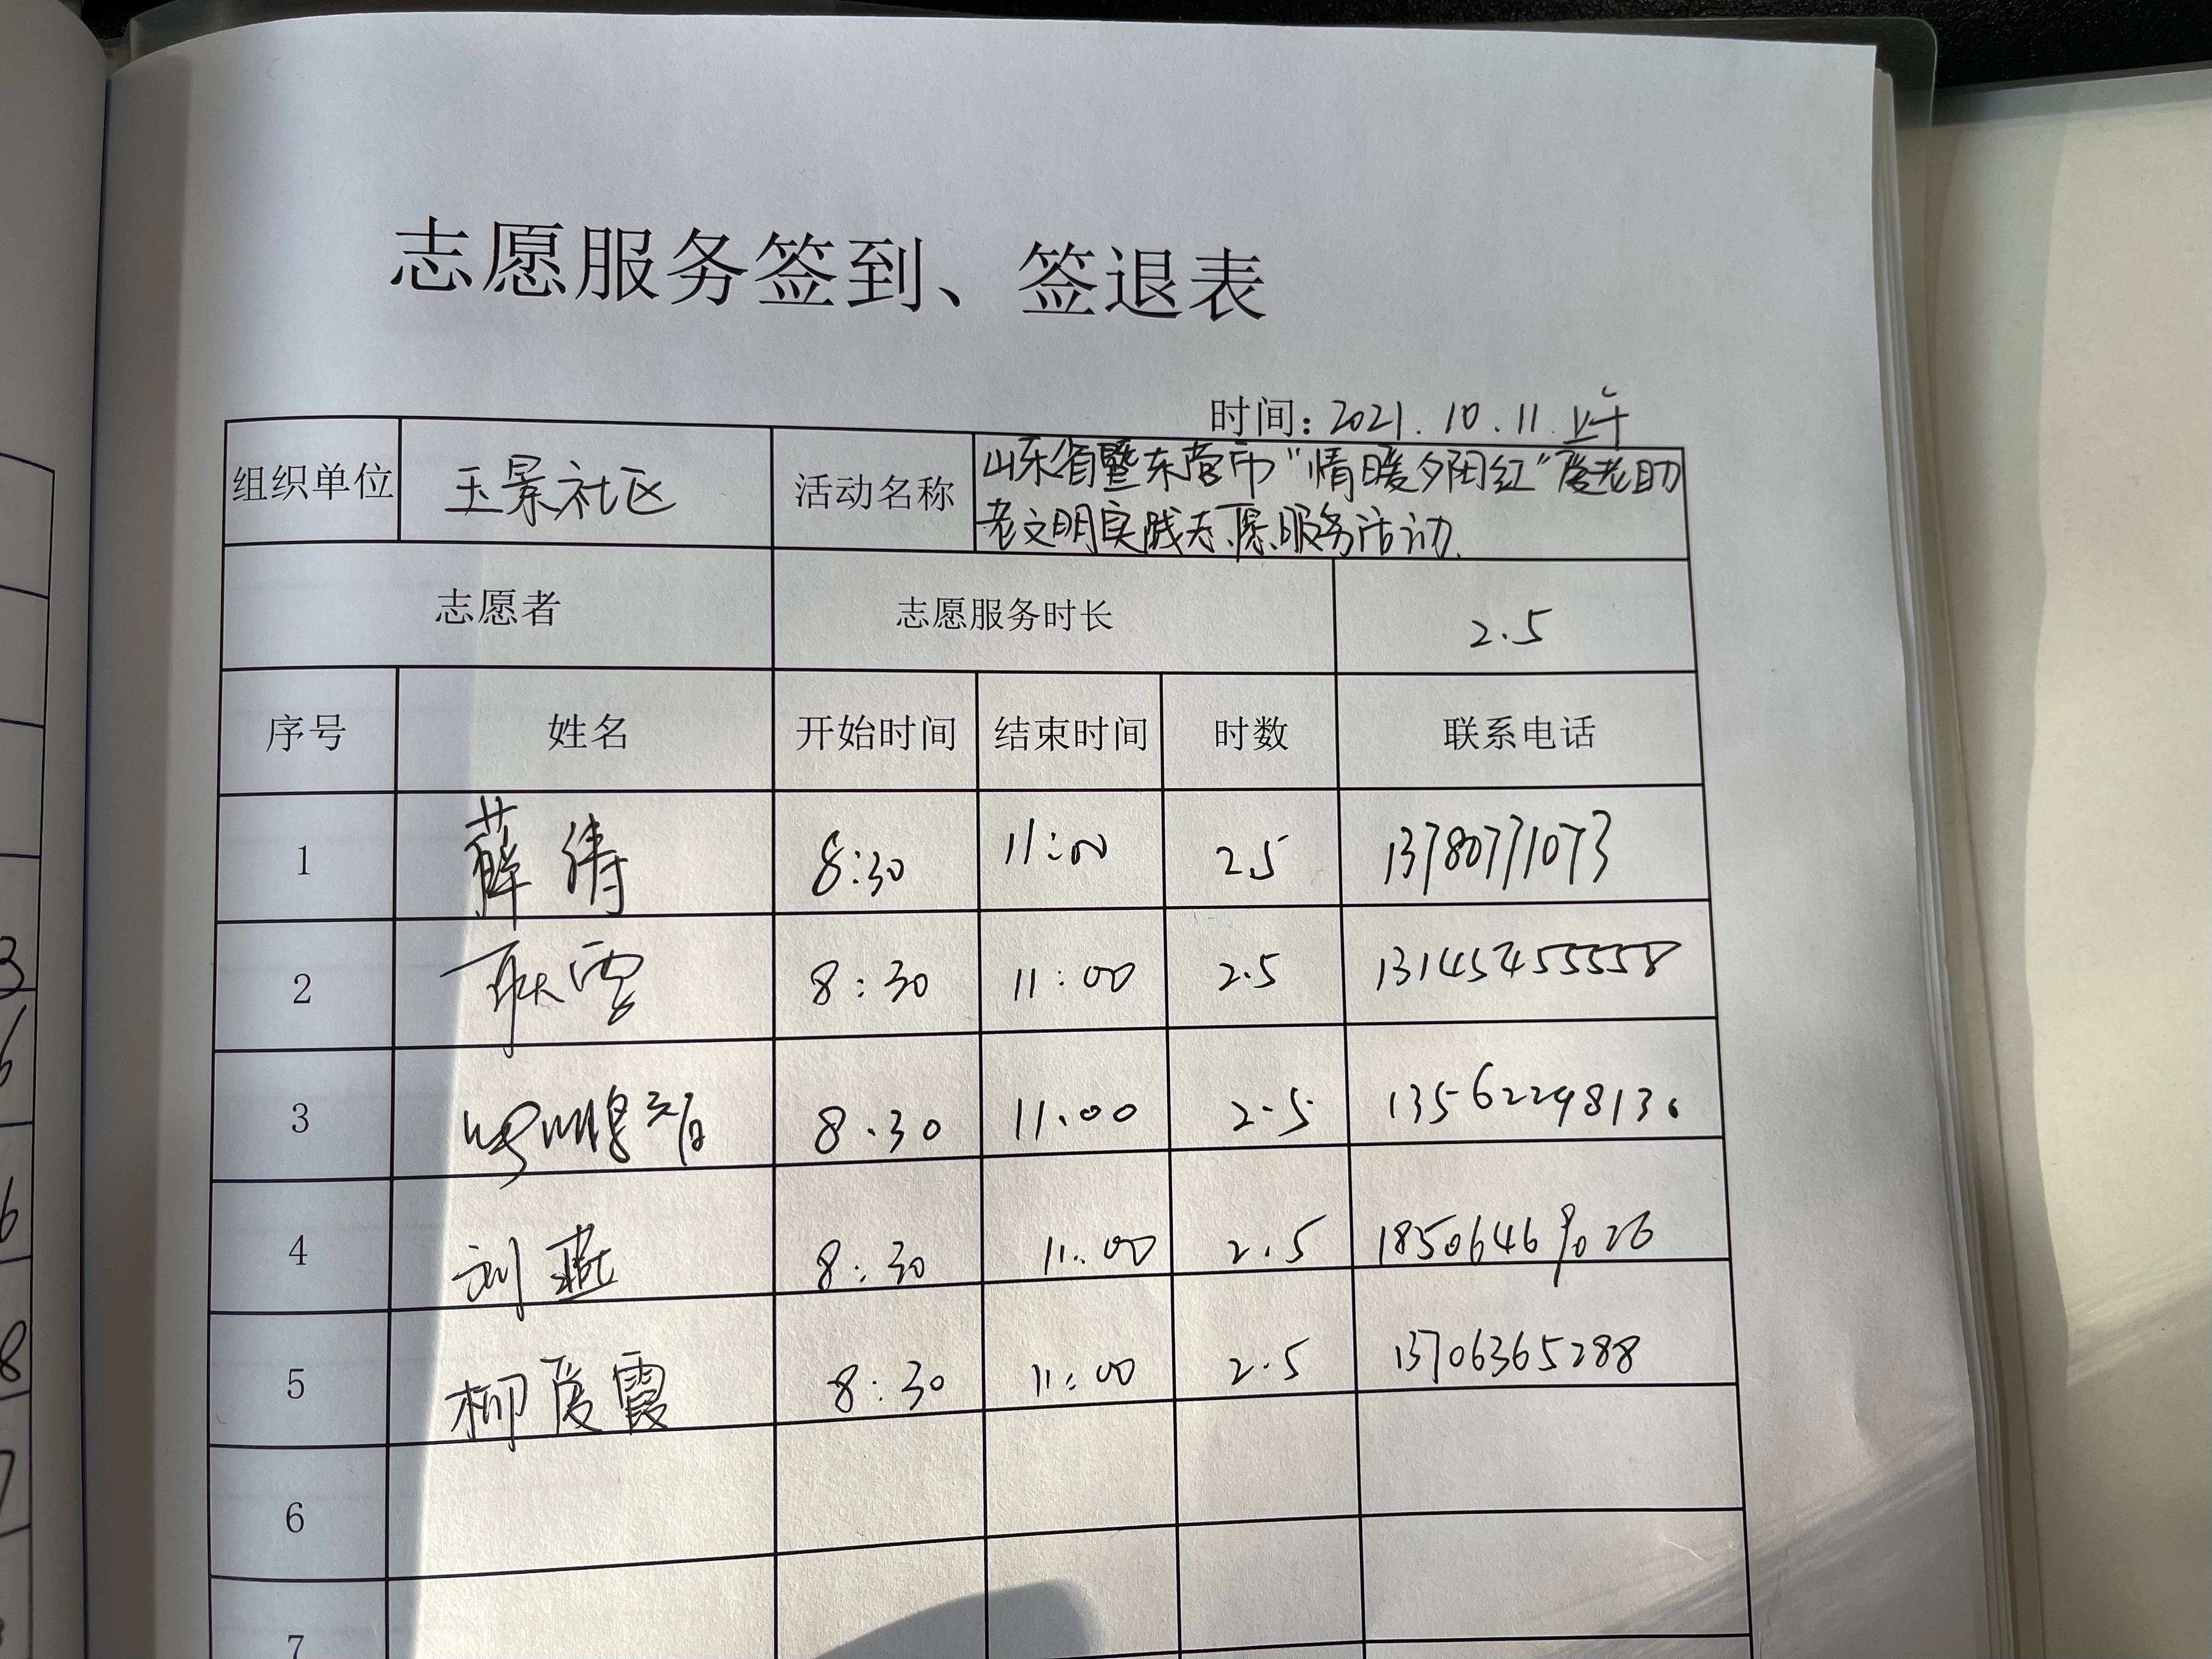 志愿服务签到、签退表
时间：2021.10.11.上午
组织单位 玉景社区 活动名称 山东省暨东营市“情暖夕阳红”爱老助
老文明实践志愿服务活动.
志愿者 志愿服务时长 2.5
序号 姓名 开始时间 结束时间 时数 联系电话
1 薛涛 8:30 11:00 2.5 13780771073
2 耿雪 8:30 11:00 2.5 13145455558
3 8.30 11.00 2.5 1356229813
4 刘燕 8:30 11:00 2.5 18506469026
5 柳爱霞 8:30 11:00 2.5 13706365288
6
7